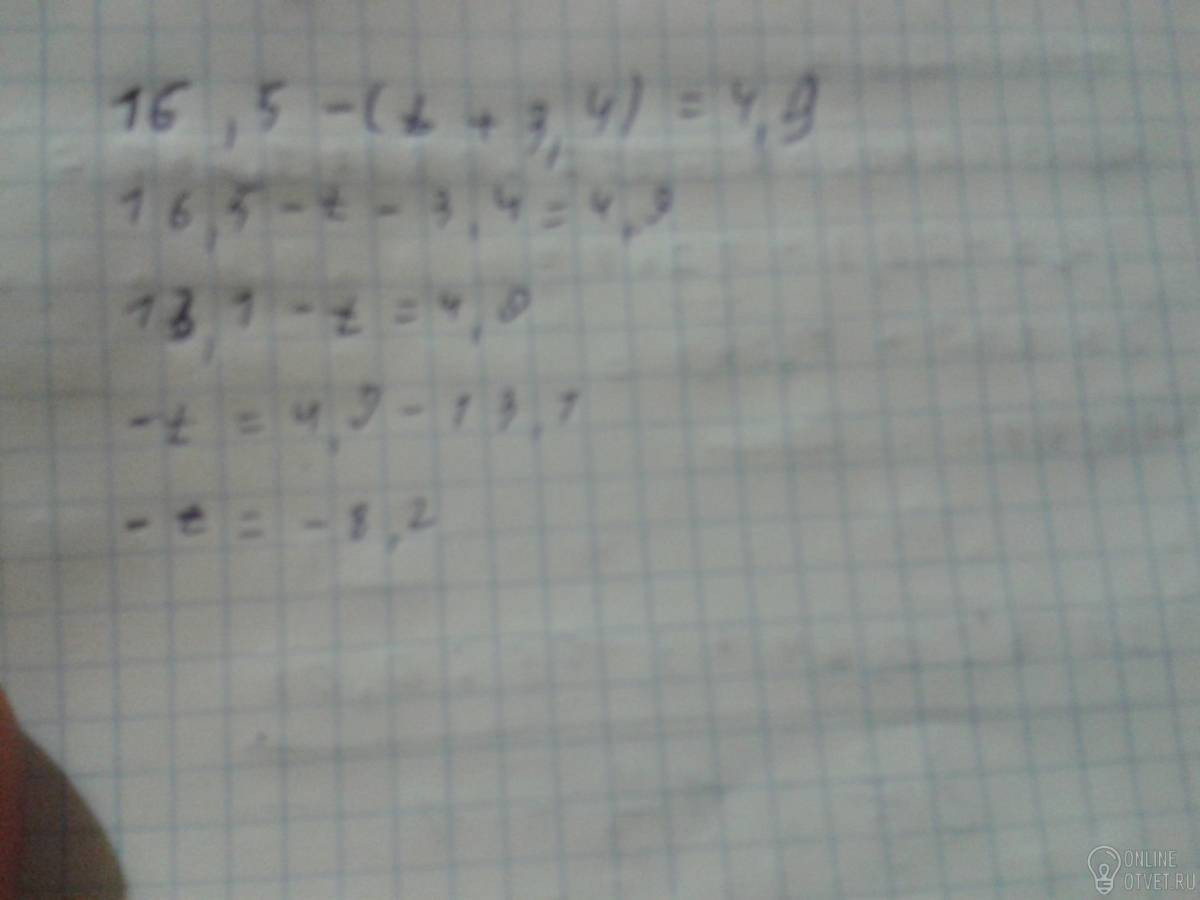 16,5-(t+3,4)=4,9
16,5-t-3,4=4,9
13,1-t=4,9
-t=4,9-13,1
-t=-8,2
ONLINE
OTVET.RU